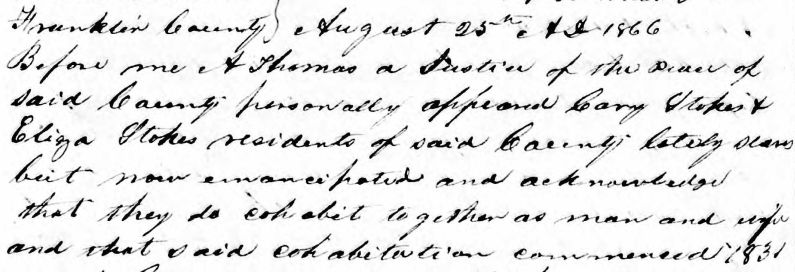 Franklin County } August 25th AD 1866
Before me A Thomas a Justice of the peace of
said County personally appeared Cary Stokes &
Eliza Stokes residents of said County lately slaves
but now emancipated and acknowledge
that they do cohabit together as man and wife
and that said cohabitation commenced 1831